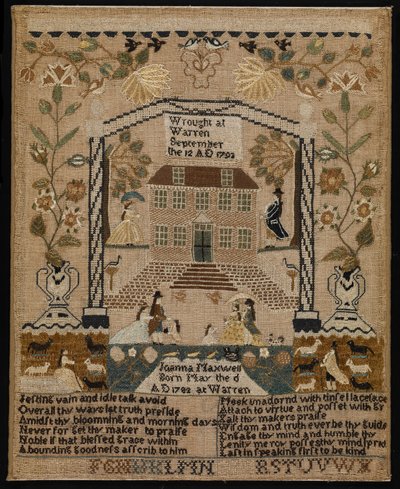 Wrought at
Warren
September
the 12 A D 1793
Joanna Maxwell
Born May the d
A D 1782 at Warren
Jesting vain and idle talk avoid
Over all thy ways let truth preside
Amidst thy bloomning and morning days
Never for get thy maker to praise
Noble is that blessed Grace within
Abounding goodness ascrib to him
Meek unadornd with tinsel
Attach to virtue and
thy makers praise
Wisdom and truth ever be thy guide
Engage thy mind and humble thy
Lenity mercy possess thy mind
Last in speaking first to be kind
R S T U V W X